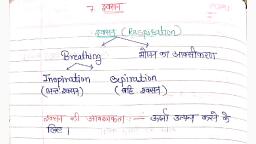 7. श्वसन
श्वसन (Respiration)
Breathing भोजन का आक्सीकरण
Inspiration Expiration
(अन्तः श्वसन) (बहिः श्वसन)
श्वसन की आवश्यकता :— ऊर्जा उत्पन्न करने के
लिए।